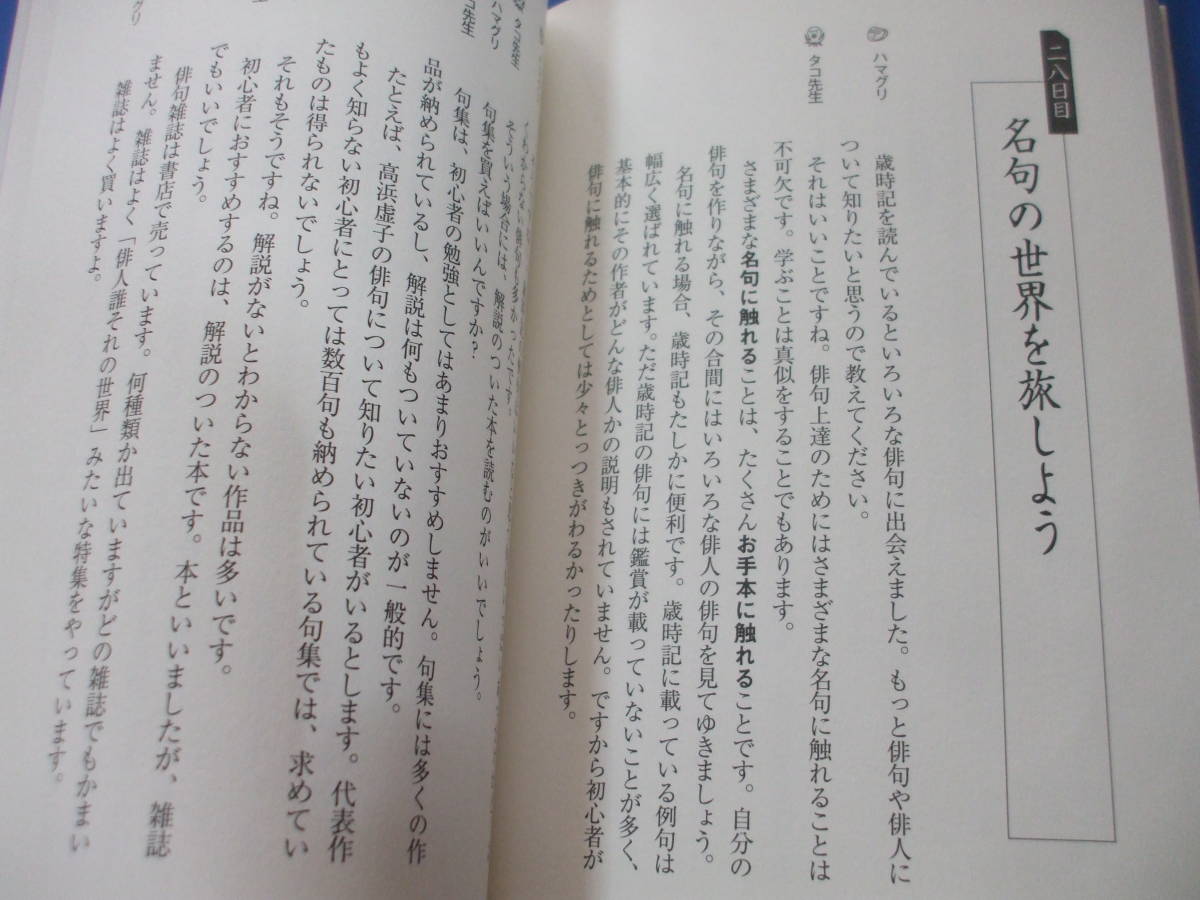 二八日目
名句の世界を旅しよう
ハマグリ
歳時記を読んでいるといろいろな俳句に出会えました。もっと俳句や俳人に
ついて知りたいと思うので教えてください。
タコ先生
それはいいことですね。俳句上達のためにはさまざまな名句に触れることは
不可欠です。学ぶことは真似をすることでもあります。
さまざまな名句に触れることは、たくさんお手本に触れることです。自分の
俳句を作りながら、その合間にはいろいろな俳人の俳句を見てゆきましょう。
名句に触れる場合、歳時記もたしかに便利です。歳時記に載っている例句は
幅広く選ばれています。ただ歳時記の俳句には鑑賞が載っていないことが多く、
基本的にその作者がどんな俳人かの説明もされていません。ですから初心者が
俳句に触れるためとしては少々とっつきがわるかったりします。
そういう場合には、解説のついた本を読むのがいいでしょう。
ハマグリ
句集を買えばいいんですか?
タコ先生
句集は、初心者の勉強としてはあまりおすすめしません。句集には多くの作
品が納められているし、解説は何もついていないのが一般的です。
たとえば、高浜虚子の俳句について知りたい初心者がいるとします。代表作
もよく知らない初心者にとっては数百句も納められている句集では、求めてい
たものは得られないでしょう。
それもそうですね。解説がないとわからない作品は多いです。
初心者におすすめするのは、解説のついた本です。本といいましたが、雑誌
でもいいでしょう。
俳句雑誌は書店で売っています。何種類か出ていますがどの雑誌でもかまい
ません。雑誌はよく「俳人誰それの世界」みたいな特集をやっています。
雑誌はよく買いますよ。